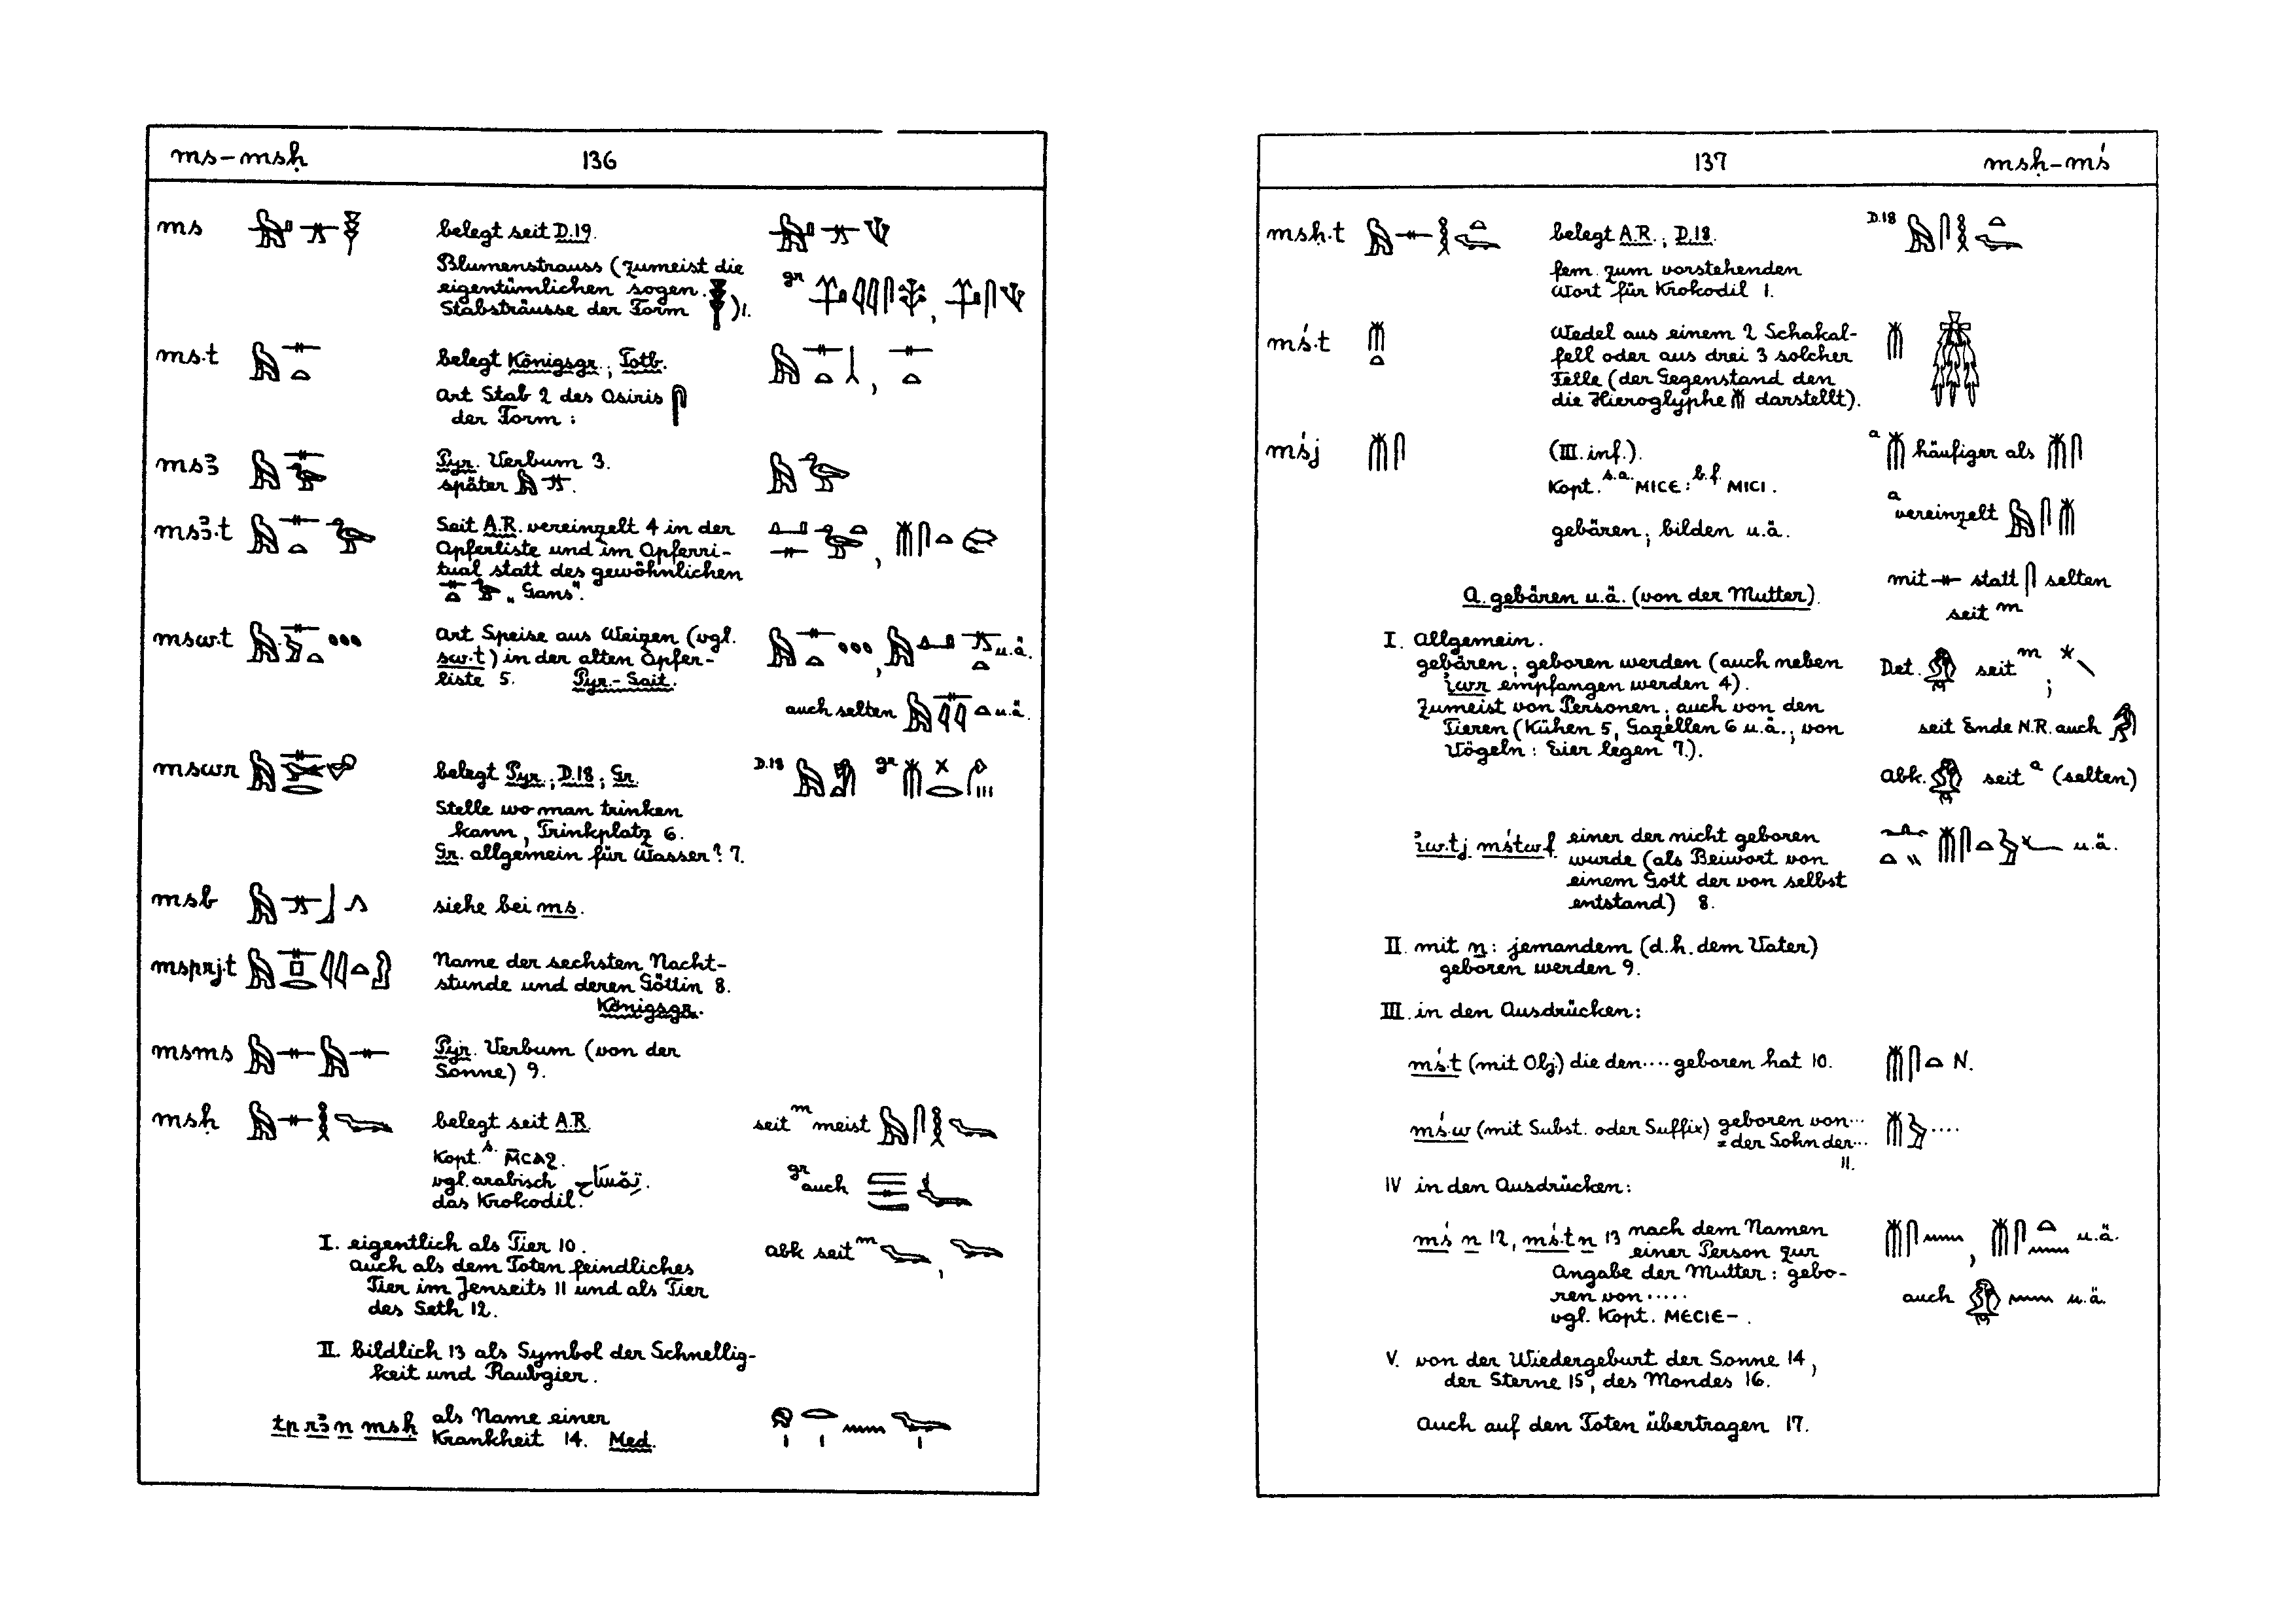 ms – msḥ 136
ms belegt seit D.19.
Blumenstrauss (zumeist die
eigentümlichen sogen.
Stabsträusse der Form )1.
gr
ms.t belegt Königsgr.; Totb.
Art Stab 2 des Osiris
der Form :
msꜣ Pyr. Verbum 3.
später
msꜣ.t Seit A.R. vereinzelt 4 in der
Opferliste und im Opferri-
tual statt des gewöhnlichen
„Gans“.
msw.t Art Speise aus Weizen (vgl.
sw.t) in der alten Opfer- u.ä.
liste 5. Pyr.-Sait.
auch selten u.ä.
mswr belegt Pyr.; D.18; Gr. D.18 gr
Stelle wo man trinken
kann, Trinkplatz 6.
Gr. allgemein für Wasser? 7.
msb siehe bei ms.
msprj.t Name der sechsten Nacht-
stunde und deren Göttin 8.
Königsgr.
msms Pyr. Verbum (von der
Sonne) 9.
msḥ belegt seit A.R. seit m meist
Kopt. s. ⲘⲤⲀϨ.
vgl. arabisch تِمْسَاح. gr auch
das Krokodil.
I. eigentlich als Tier 10. abk seit m ,
auch als dem Toten feindliches
Tier im Jenseits 11 und als Tier
des Seth 12.
II. bildlich 13 als Symbol der Schnellig-
keit und Raubgier.
tp rꜣ n msḥ als Name einer
Krankheit 14. Med.
137 msḥ – mś
msḥ.t belegt A.R.; D.18. D.18
fem. zum vorstehenden
Wort für Krokodil 1.
mś.t Wedel aus einem 2 Schakal-
fell oder aus drei 3 solcher
Felle (der Gegenstand den
die Hieroglyphe darstellt).
mśj (III. inf.). a häufiger als
Kopt. s.a. ⲘⲒⲤⲈ : b.f. ⲘⲒⲤⲒ.
a vereinzelt
gebären; bilden u.ä.
mit statt selten
seit m
A. gebären u.ä. (von der Mutter).
I. Allgemein.
gebären; geboren werden (auch neben Det. seit m ;
iwr empfangen werden 4).
Zumeist von Personen; auch von den
Tieren (Kühen 5, Gazellen 6 u.ä.; von seit Ende N.R. auch
Vögeln : Eier legen 7.).
abk. seit a (selten)
iw.tj mśtw.f einer der nicht geboren u.ä.
wurde (als Beiwort von
einem Gott der von selbst
entstand) 8.
II. mit n : jemandem (d.h. dem Vater)
geboren werden 9.
III. in den Ausdrücken:
mś.t (mit Obj.) die den .... geboren hat 10. N.
mś.w (mit Subst. oder Suffix) geboren von ... ....
= der Sohn der ...
11.
IV in den Ausdrücken:
mś n 12, mś.t n 13 nach dem Namen , u.ä.
einer Person zur
Angabe der Mutter : gebo-
ren von ..... auch u.ä.
vgl. Kopt. ⲘⲈⲤⲒⲈ- .
V. von der Wiedergeburt der Sonne 14,
der Sterne 15, des Mondes 16.
Auch auf den Toten übertragen 17.